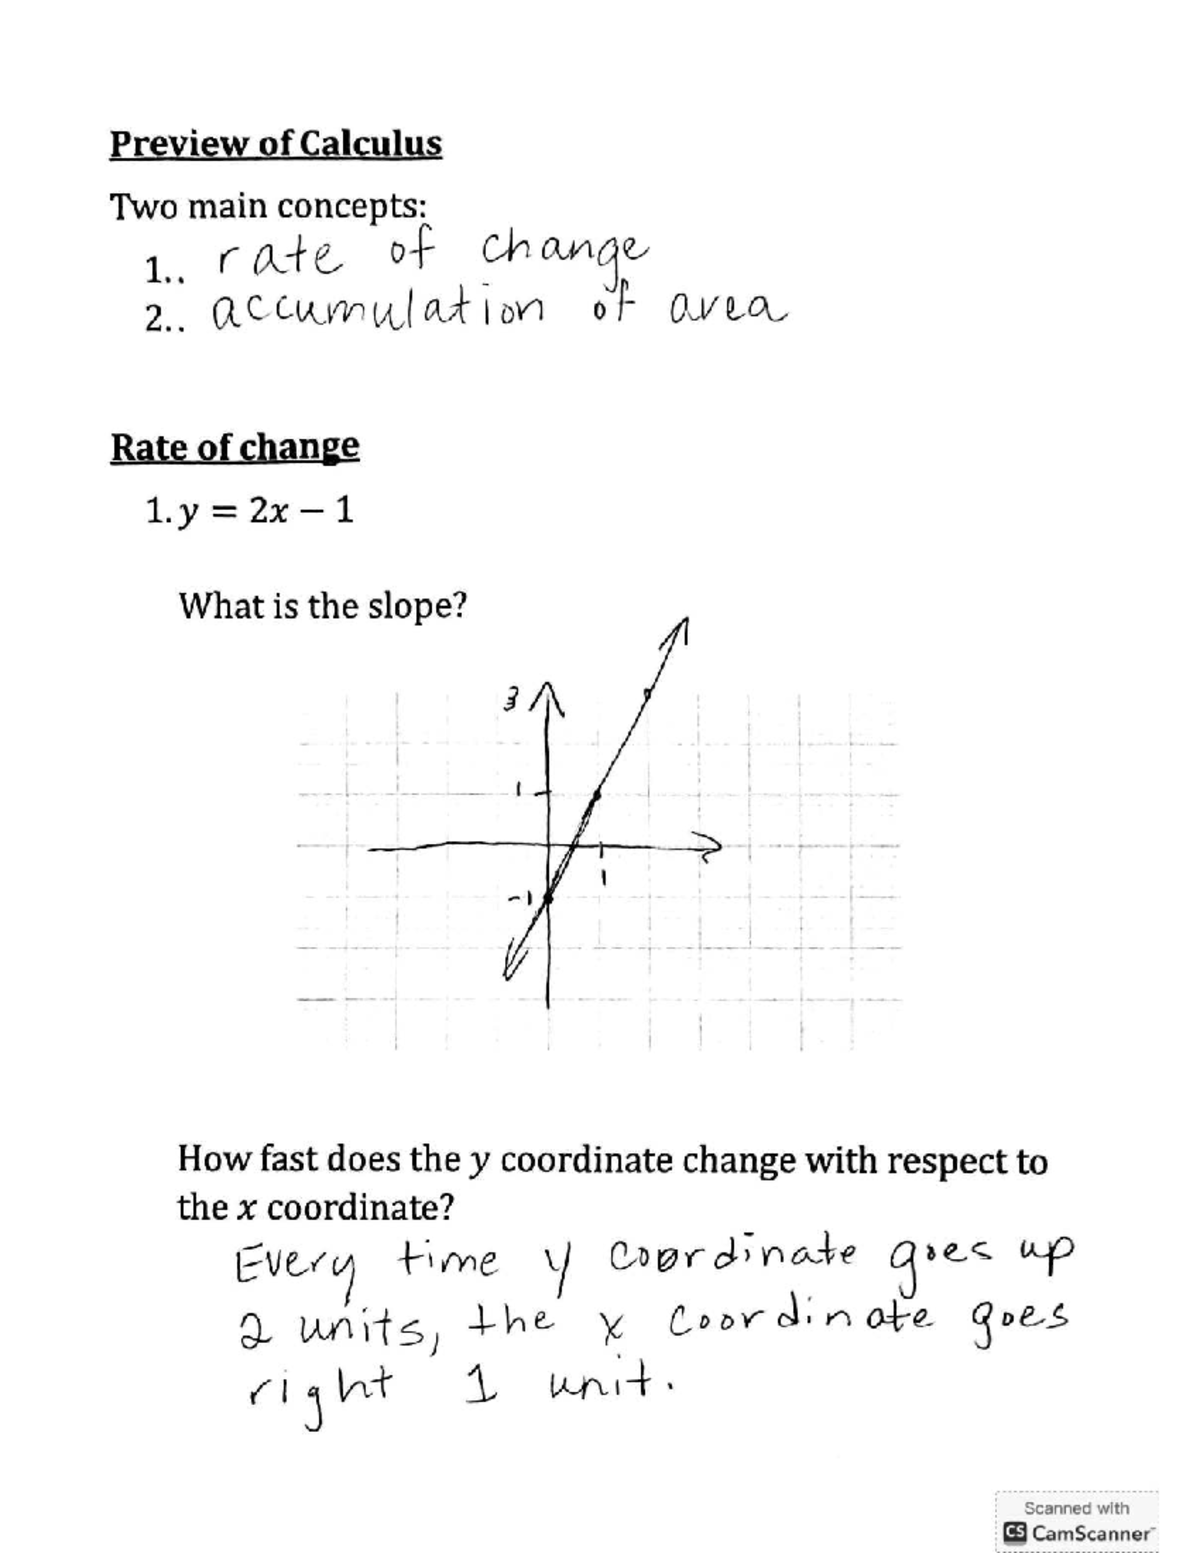 Preview of Calculus
Two main concepts:
1.. rate of change
2.. accumulation of area
Rate of change
1. y = 2x − 1
What is the slope?
3
1
1
-1
How fast does the y coordinate change with respect to
the x coordinate?
Every time y coordinate goes up
2 units, the x coordinate goes
right 1 unit.
Scanned with
CS CamScanner